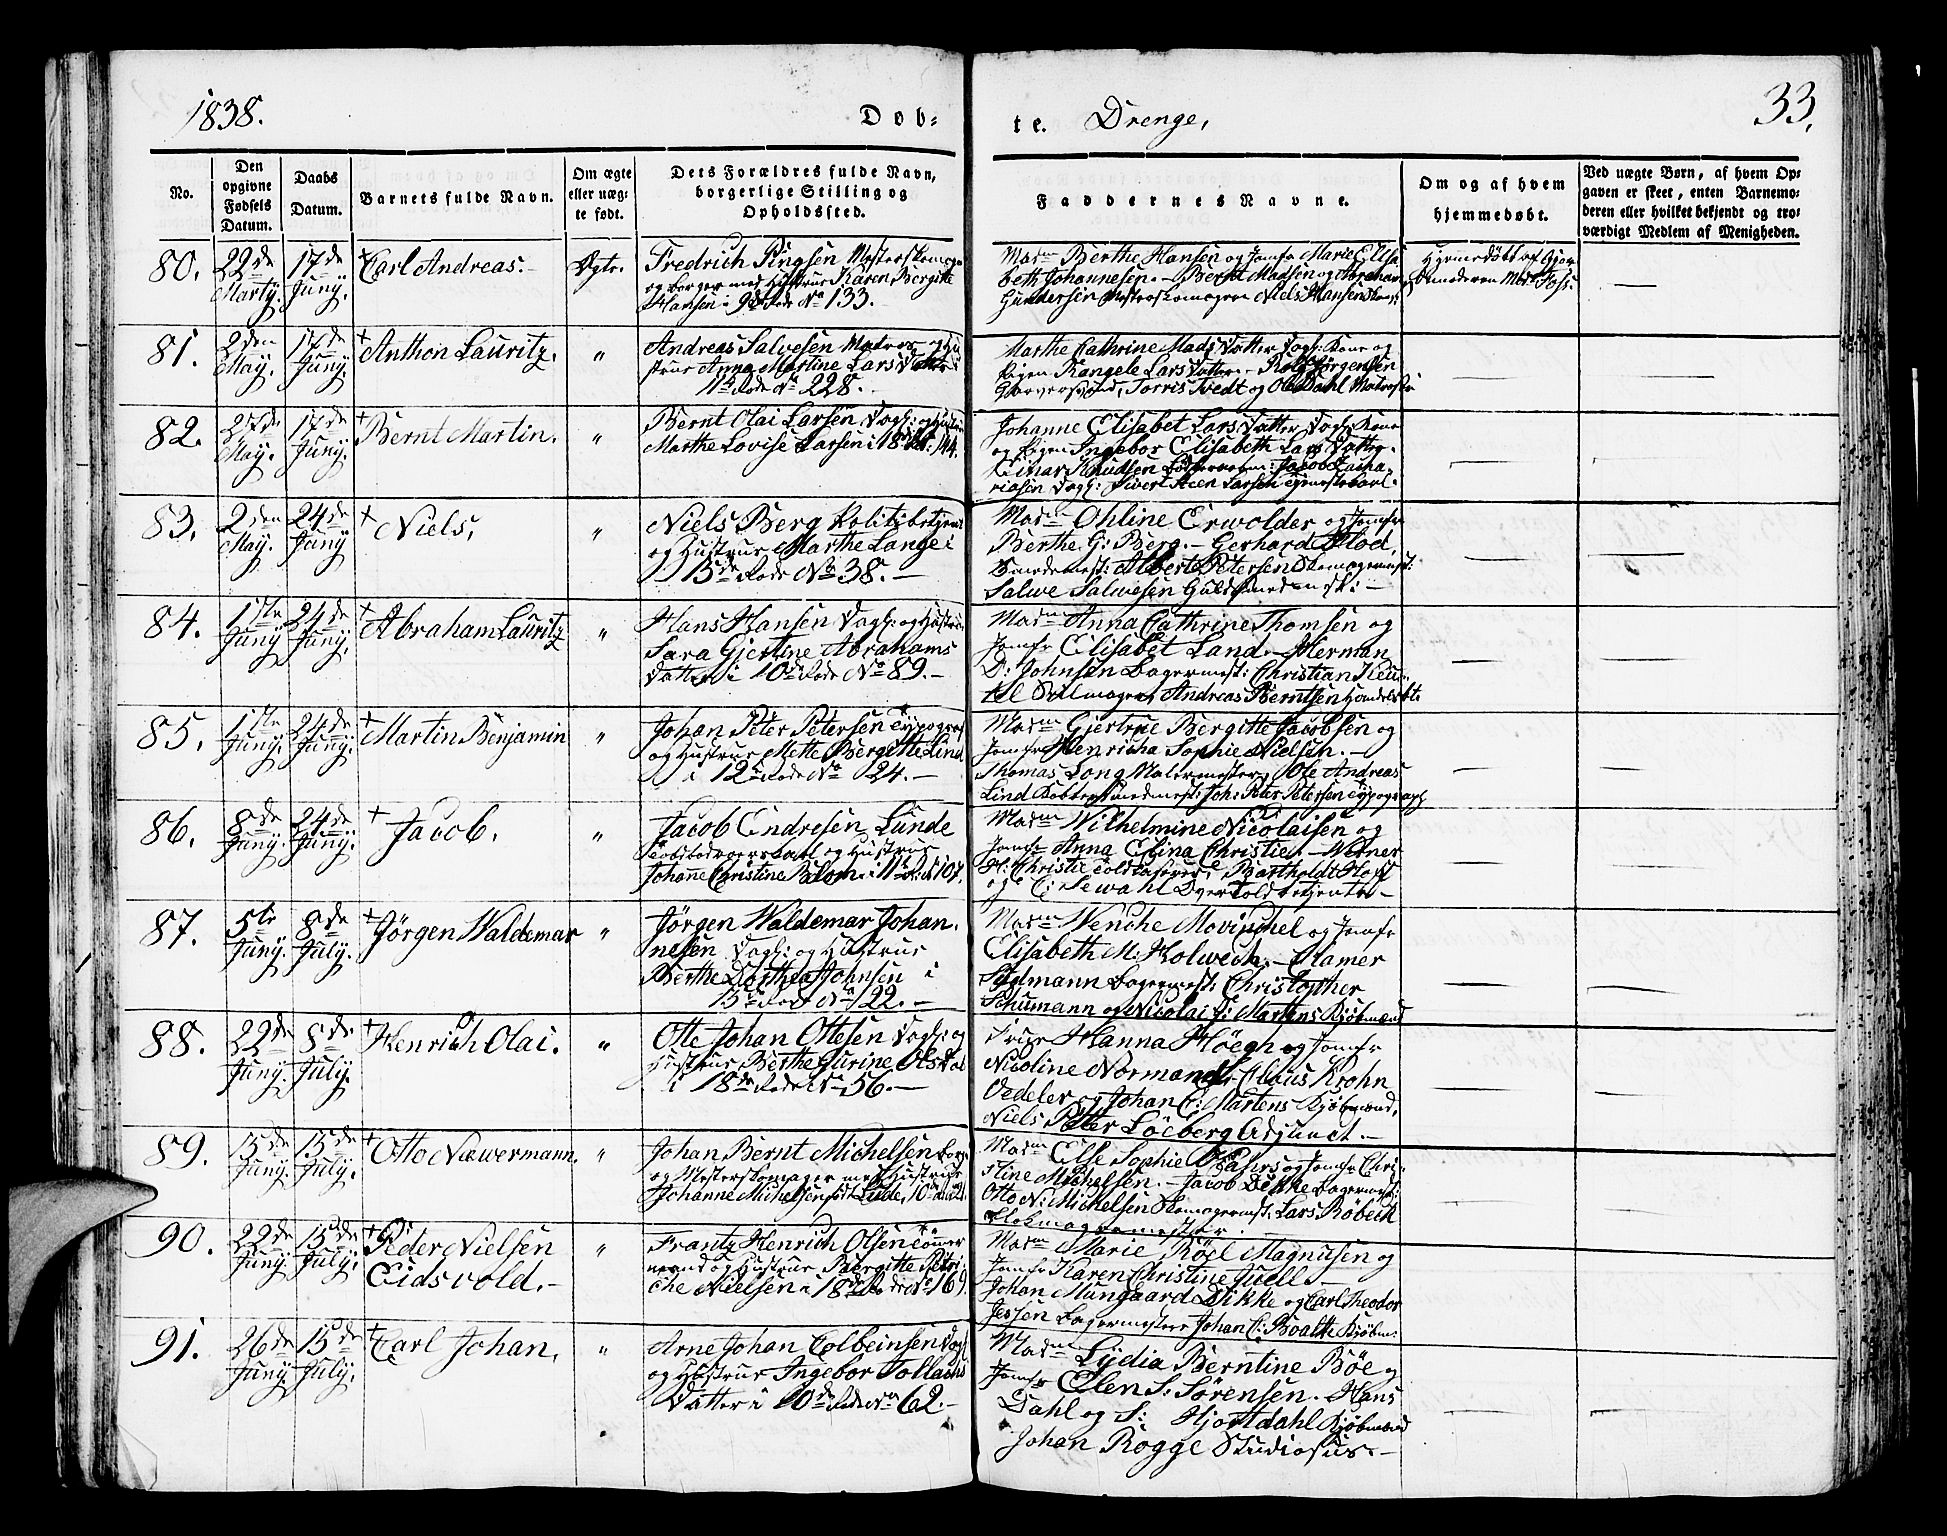 1838.
Døb-
te. Drenge,
33.
No.
Den opgivne Fødsels Datum.
Daabs Datum.
Barnets fulde Navn.
Om ægte eller uæg-te født.
Dets Forældres fulde Navn, borgerlige Stilling og Opholdssted.
Faddernes Navne.
Om og af hvem hjemmedøbt.
Ved uægte Børn, af hvem Op-gaven er skeet, enten Barnemo-deren eller hvilket bekjendt og tro-værdigt Medlem af Menigheden.
80. 22de Martÿ. 17de Junÿ. Carl Andreas. Ægte.
Fredrich Pingsen
og Borger med Hustrue Karen Bergitte
Hansen i 9de Rode No 133.
Madm Berthe Hansen og Jomfr Marie Elisa
beth Johannesen. Bernt Madsen og Abraham
Gundersen Niels Hansen
Hjemedøbt af Gjor
demoderen
81. 2den May. 17de Junÿ. Anthon Lauritz. "
Andreas Salvesen Matros og Hu
strue Anna Martine Lars Datter i
11te Rode No 228.
Marthe Cathrine Mads Datter Dagl: Kone og
Pigen Rangele Lars Datter. Rolf Jørgensen
Torris Tvedt og Ole Dahl Matroser
82. May. 17de Junÿ. Bernt Martin. "
Bernt Olai Larsen Dagl: og Hustrue
Marthe Lovise Larsen i 18de No: 144.
Johanne Elisabet Lars Datter Dagl. Kone
og Pigen Ingebor Elisabeth Lars Datter.
Einar Knudsen Jacob Zacha-
riasen Dagl: Sivert Larsen
83. 2den May. 24de Junÿ Niels, "
Niels Berg Politibetjent
og Hustrue Marthe Lange i
15de Rode No 38.
Madm Ohline Erwolder og Jomfr
Berthe G: Berg. Gerhard Flod,
Smedemest: Albert Petersen Skomagermest:
Salve Salvesen Guldsmedmest:
84. 1ste Junÿ 24de Junÿ. Abraham Lauritz "
Hans Hansen Dagl: og Hustrue
Sara Gjertine Abrahams
Datter i 10de Rode No 89.
Madm Anna Cathrine Thomsen og
Jomfr Elisabet Land. Herman
D: Johnsen Bagermest: Christian
Andreas Berntsen
85. 1ste Junÿ. 24de Junÿ. Martin Benjamin "
Johan Peter Petersen Typograf
og Hustrue Mette Bergitte Lind
i 12te Rode No 24.
Madm Gjertrue Bergitte Jacobsen og
Jomfr Henricha Sophie Nielsen.
Thomas Long Malermester, Ole Andreas
Lind Kobbersmedmest: Joh: Peter Petersen Typograph
86. 8de Junÿ. 24de Junÿ. Jacob. "
Jacob Endresen Lunde
og Hustrue
Johanne Christine Blom i 11te 107.
Madm Wilhelmine Nicolaisen og
Jomfr Anna Elina Christie. Werner
H: Christie Toldkasserer, Bartholdt Hoff
og C: Sewahl Overtoldbetjente.
87. 5te Junÿ. 8de July. Jørgen Waldemar "
Jørgen Waldemar Johan.
nesen Dagl: og Hustrue
Berthe Dorthea Johnsen i
15de Rode No 122.
Madm Wenche Movinchel og Jomfr
Elisabeth M: Holwech. Clamer
Bagermest: Christopher
Schumann og Nicolai S: Martens Kjøbmænd
88. 22de Junÿ. 8de Julÿ. Henrich Olai. "
Otte Johan Ottesen Dagl: og
Hustrue Berthe Gurine Ols Dat
i 18de Rode No 56.
Frue Hanna Höegh og Jomfr
Nicoline Normand. Claus Krohn
Vedeler og Johan C: Martens Kjøbmænd,
Niels Petter Löcberg Adjunct.
89. 15de Junÿ. 15de Julÿ. Otto Næwermann. "
Johan Bernt Michelsen Borg:
og Mesterskomager med Hustrue
Johanne Michelsen født Lude,
Madm Else Sophie og Jomfr Chri-
stine Michelsen. Jacob Dekke Bagermest:
Otto N: Michelsen Skomagermest: Lars Røbech
Blokmagermester.
90. 22de Junÿ. 15de Julÿ. Peder Nielsen Eidsvold. "
Frantz Henrich Olsen Tömer
mand og Hustrue Bergitte Petri
che Nielsen i 18de Rode No 169.
Madm Marie Röel Magnusen og
Jomfr Karen Christine Juell.
Johan Mungaard Dekke og Carl Theodor
Jessen Bagermestere Johan C: Kjøbm:
91. 26de Junÿ. 15de Julÿ. Carl Johan, "
Arne Johan Colbeinsen Dagl
og Hustrue Ingebor Tollachs
Datter i 20de Rode No 62.
Madm Lÿdia Berntine Bøe og
Jomfr Elen S: Sörensen. Hans
Dahl og S: Hjortdahl Kjøbmænd
Johan Rogge Studiosus.